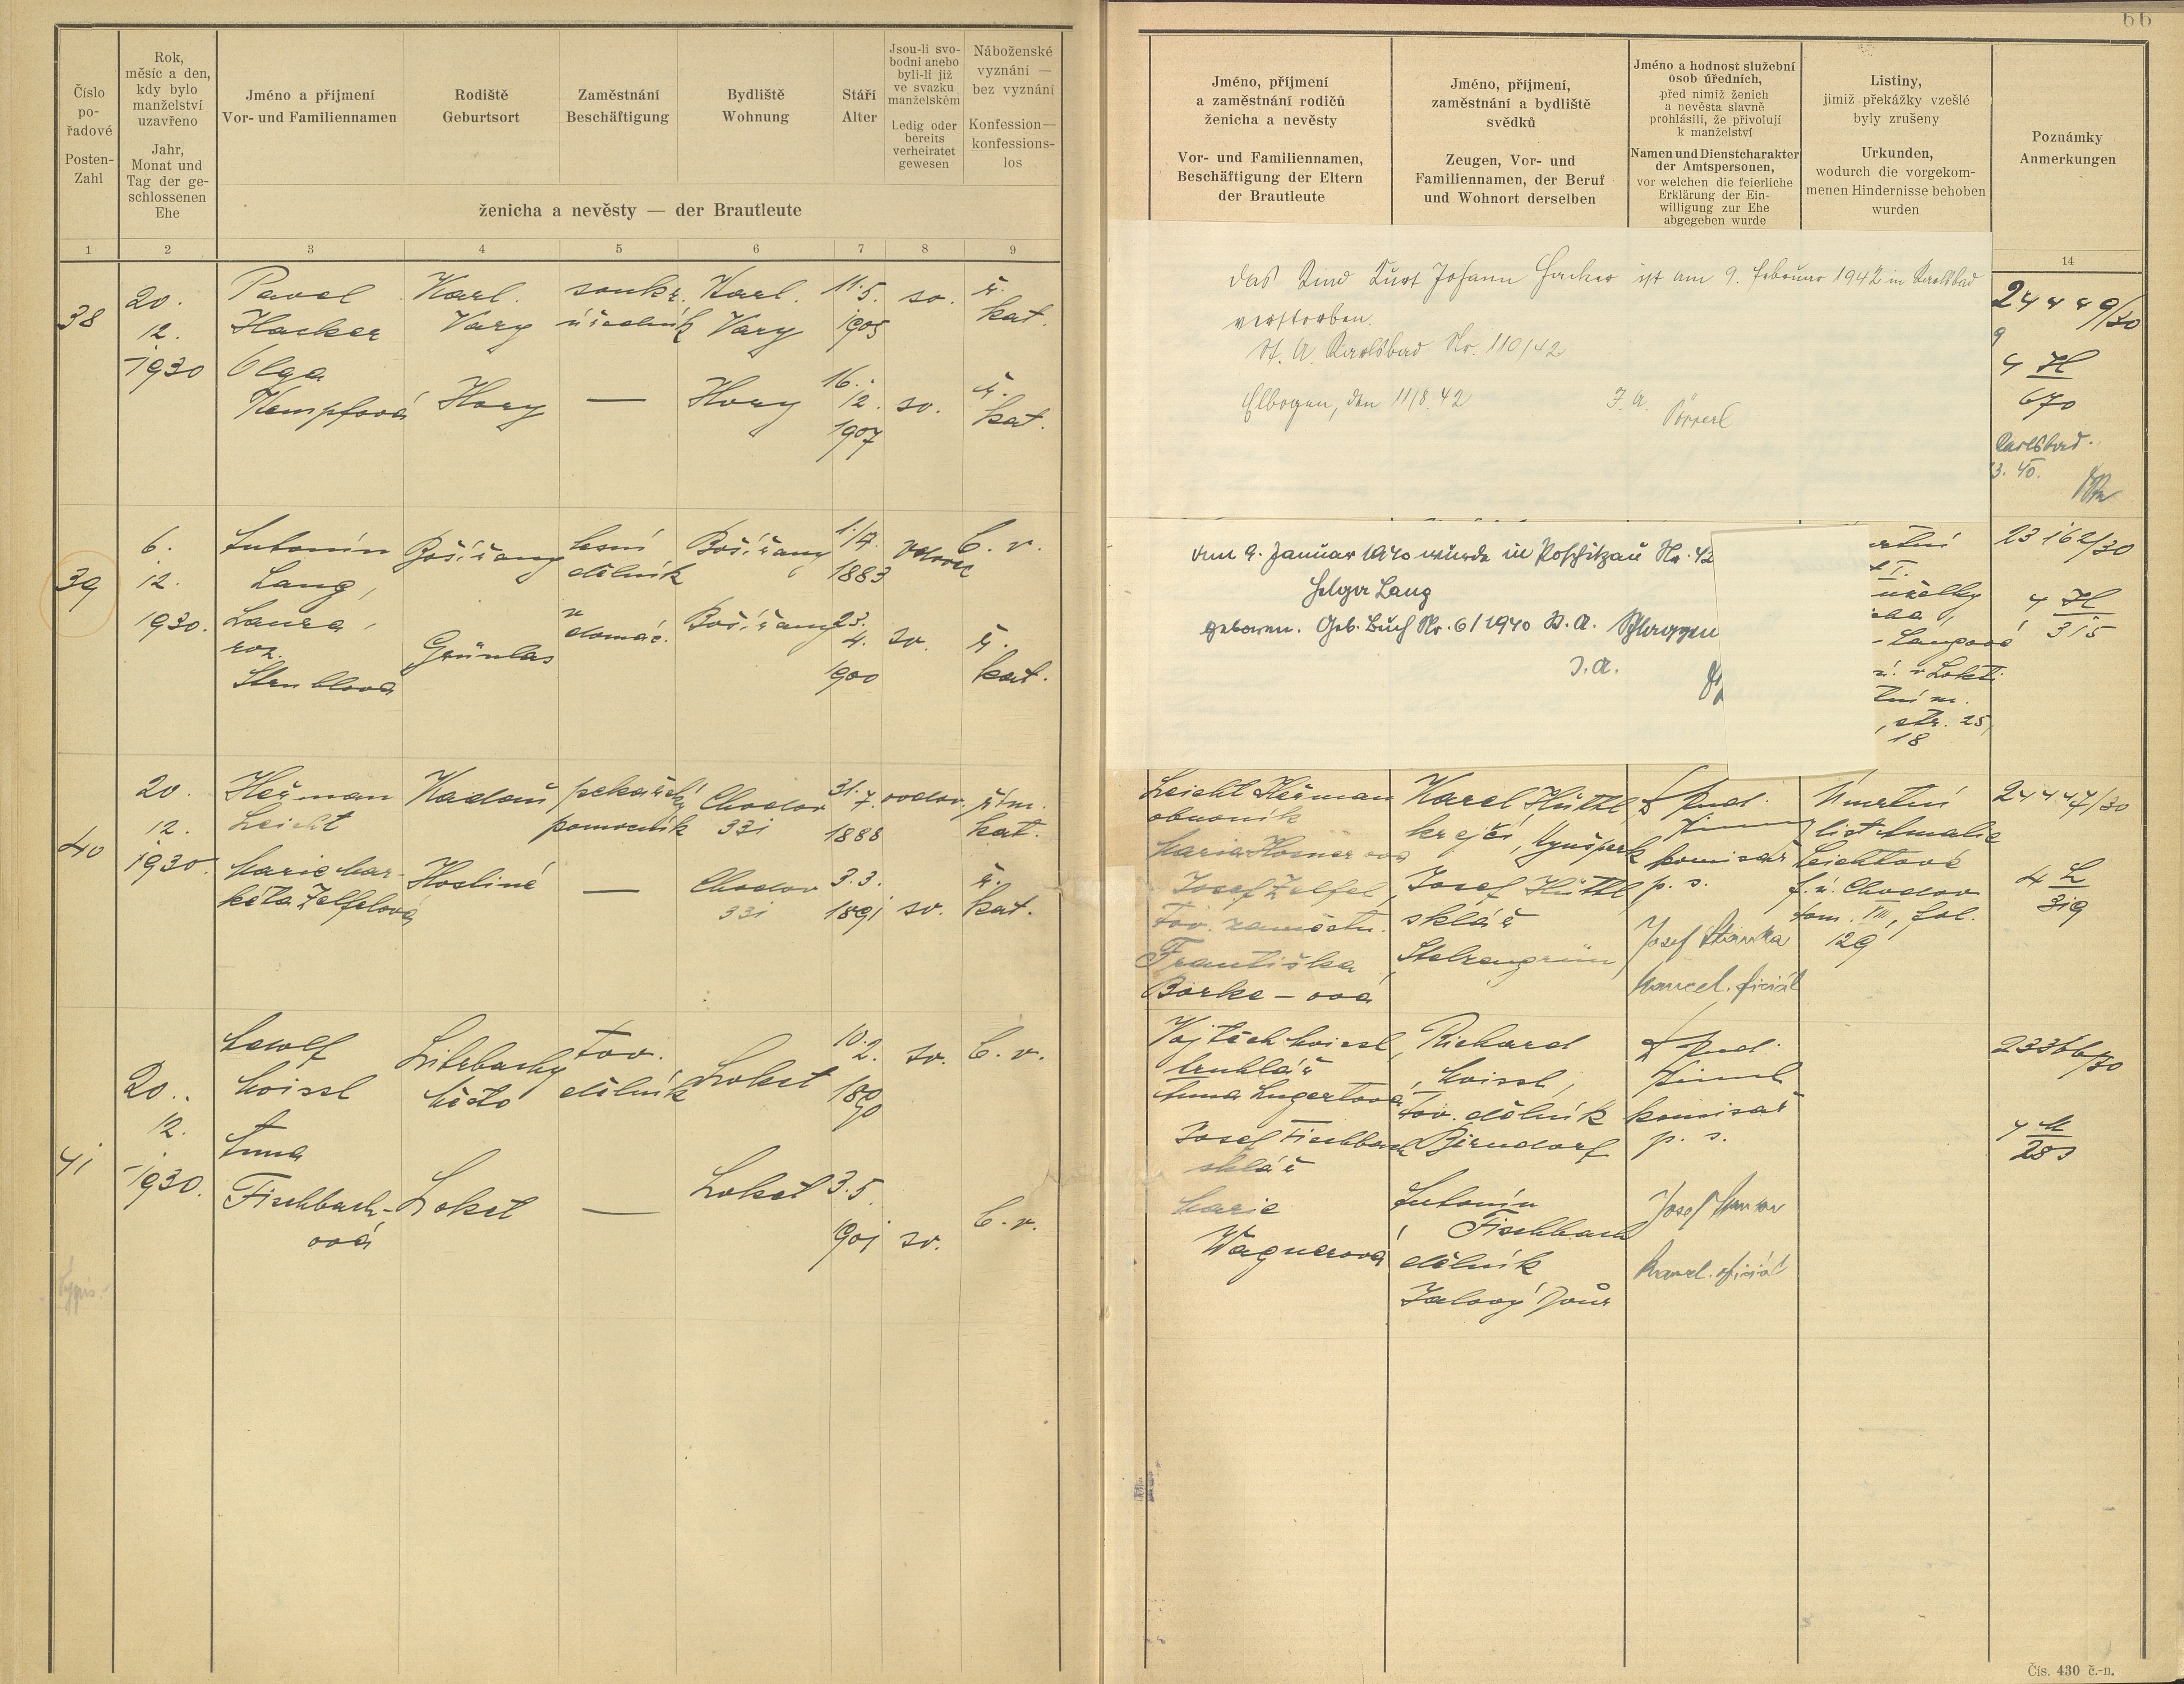 66
Číslo
po-
řadové
Posten-
Zahl
Rok,
měsíc a den,
kdy bylo
manželství
uzavřeno
Jahr,
Monat und
Tag der ge-
schlossenen
Ehe
Jméno a příjmení
Vor- und Familiennamen
Rodiště
Geburtsort
Zaměstnání
Beschäftigung
Bydliště
Wohnung
Stáří
Alter
Jsou-li svo-
bodni anebo
byli-li již
ve svazku
manželském
Ledig oder
bereits
verheiratet
gewesen
Náboženské
vyznání —
bez vyznání
Konfession—
konfessions-
los
ženicha a nevěsty — der Brautleute
1 2 3 4 5 6 7 8 9
Jméno, příjmení
a zaměstnání rodičů
ženicha a nevěsty
Vor- und Familiennamen,
Beschäftigung der Eltern
der Brautleute
Jméno, příjmení,
zaměstnání a bydliště
svědků
Zeugen, Vor- und
Familiennamen, der Beruf
und Wohnort derselben
Jméno a hodnost služební
osob úředních,
před nimiž ženich
a nevěsta slavně
prohlásili, že přivolují
k manželství
Namen und Dienstcharakter
der Amtspersonen,
vor welchen die feierliche
Erklärung der Ein-
willigung zur Ehe
abgegeben wurde
Listiny,
jimiž překážky vzešlé
byly zrušeny
Urkunden,
wodurch die vorgekom-
menen Hindernisse behoben
wurden
Poznámky
Anmerkungen
14
38
20.
12.
1930
Pavel
Hacker
Olga
Kempfová
Karl.
Vary
Hory
soukr.
úředník
—
Karl.
Vary
Hory
11.5.
1905
16.
12.
1907
sv.
sv.
ř.
kat.
ř.
kat.
Das Kind Kurt Johann Hacker ist am 9. Februar 1942 in Karlsbad
verstorben.
St. A. Karlsbad Nr. 110/42
Elbogen, den 11/8. 42
J. A.
24449/30
9
4 H
670
Karlsbad.
3. 40.
39
6.
12.
1930.
Antonín
Lang,
Laura,
roz.
Grünlas
lesní
dělník
domác.
1./7.
1883
23.
4.
1900
vdovec
sv.
b. v.
ř.
kat.
Am 9. Januar 1940 wurde in Poschitzau Nr. 42
Helga Lang
geboren. Geb. Buch Nr. 6/1940 St. A.
J. A.
Langové
v Lokti
str. 25,
18
23162/30
4 H
315
40
20.
12.
1930.
Heřman
Leicht
Marie Mar-
kéta Zelfelová
Kadaň
pekařský
pomocník
—
Chodov
331
Chodov
331
31.
7.
1888
3.3.
1891
vdov.
sv.
kat.
ř.
kat.
Leicht Heřman
obuvník
Josef Zelfel
tov. zaměstn.
Františka
Karel Hüttl,
krejčí,
Josef Hüttl,
sklář
Stelzengrün
komisař
p. s.
Josef
kancel. oficiál
Úmrtní
list Amalie
Leichtové
f. ú. Chodov
tom. VIII, fol.
129
24447/30
4 L
319
41
20.
12.
1930.
Moissl
Anna
Fischbach-
ová
Město
Loket
tov.
dělník
—
Loket
Loket
10.
2.
1890
3.5.
1901
sv.
sv.
b. v.
b. v.
Vojtěch Moissl,
truhlář
Anna Lugertová
Josef Fischbach
sklář
Marie
Wagnerová
Richard
Moissl,
tov. dělník
Birndorf
Antonín
Fischbach
dělník
Jalový Dvůr
komisař
p. s.
Josef
kancel. oficiál
23366/30
4 M
283
Čís. 430 č.-n.